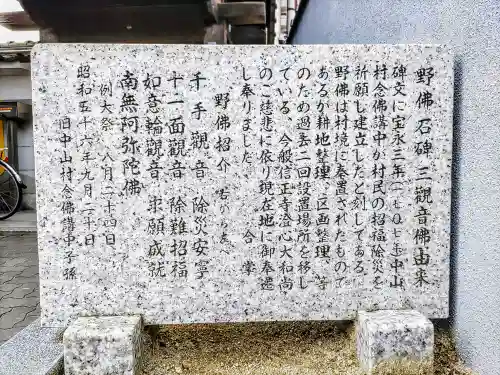 野佛石碑三観音佛由来
碑文に宝永三年(一七〇七年)中山
村念佛講中が村民の招福除災を
祈願し建立したと刻してある。
野佛は村境に奉置されたもので
あるが耕地整理、区画整理、等
のため過去二回設置場所を移し
ている。今般信正寺澄心大和尚
のご慈悲に依り現在地に御奉遷
し奉りました。 合掌
野佛招介 右から左へ
千手觀音 除災安寧
十一面觀音 除難招福
如意輪觀音 求願成就
南無阿弥陀佛
例大祭 八月二十四日
昭和五十六年九月二十日
旧中山村念佛講中子孫